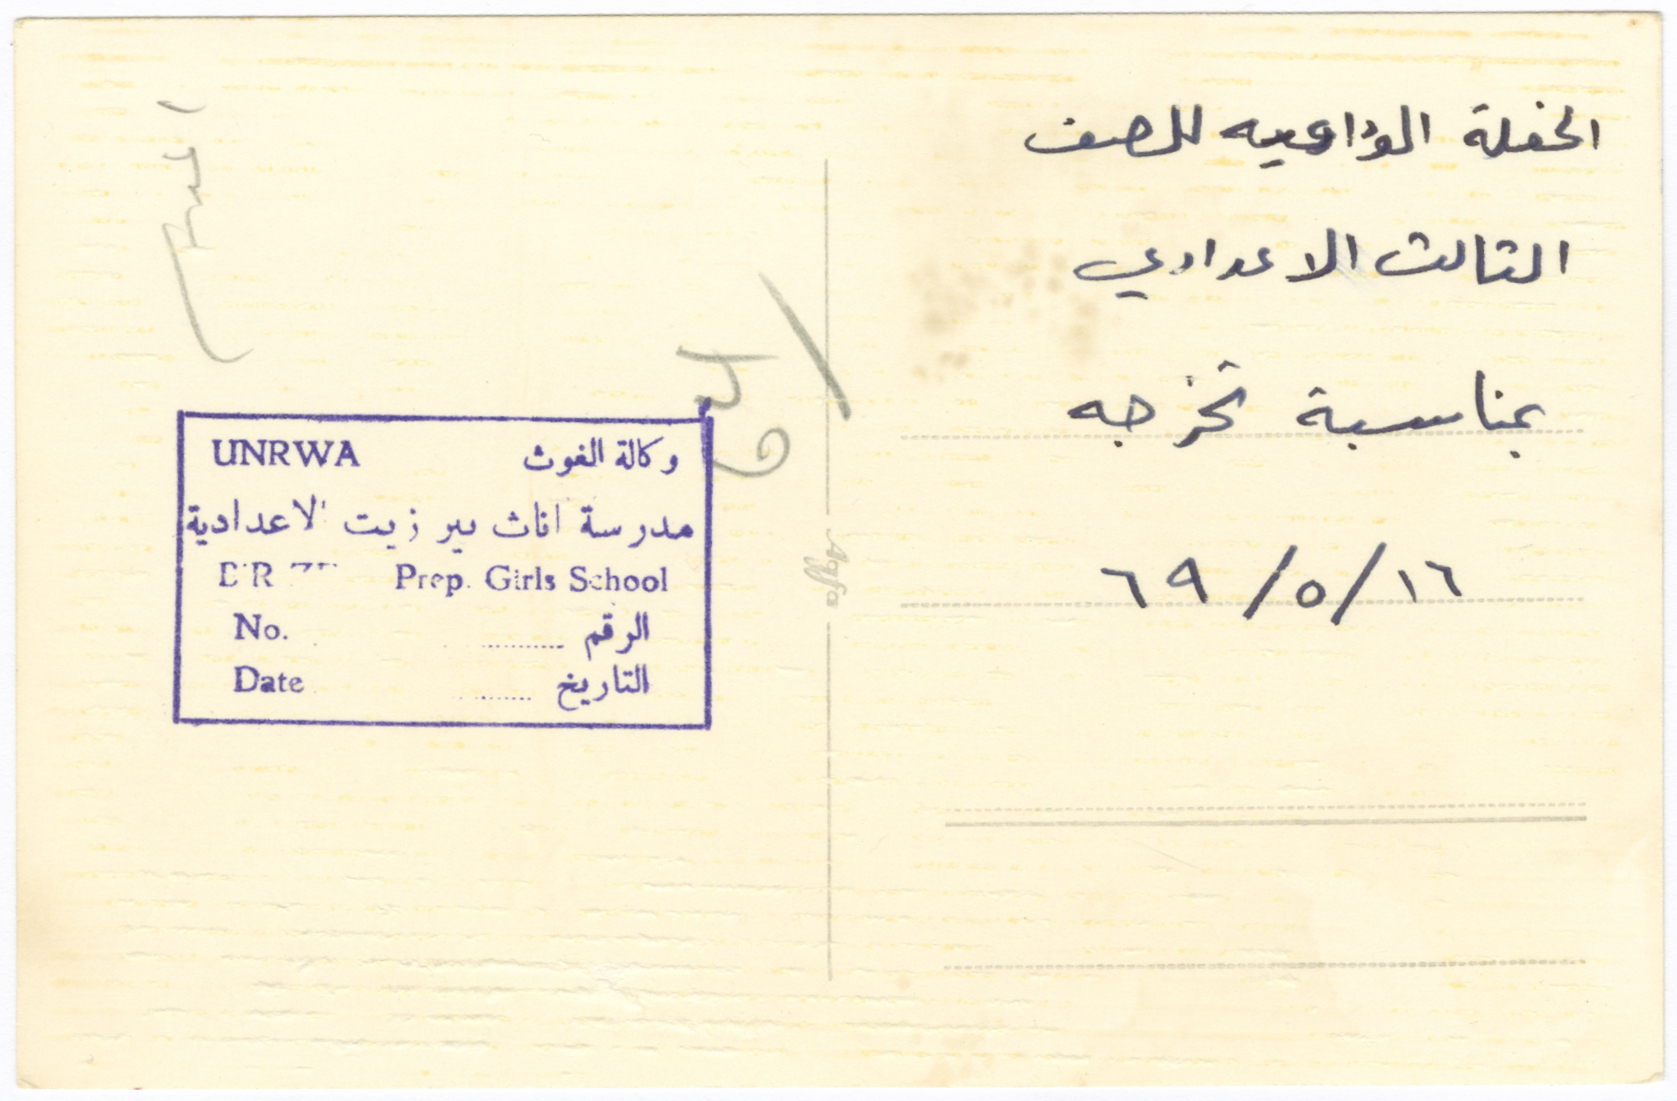 الحفلة الوداعيه للصف
الثالث الاعدادي
بمناسبة تخرجه
١٦/٥/٦٩
Agfa
UNRWA وكالة الغوث
مدرسة اناث بير زيت الاعدادية
Prep. Girls School
No. الرقم
Date التاريخ